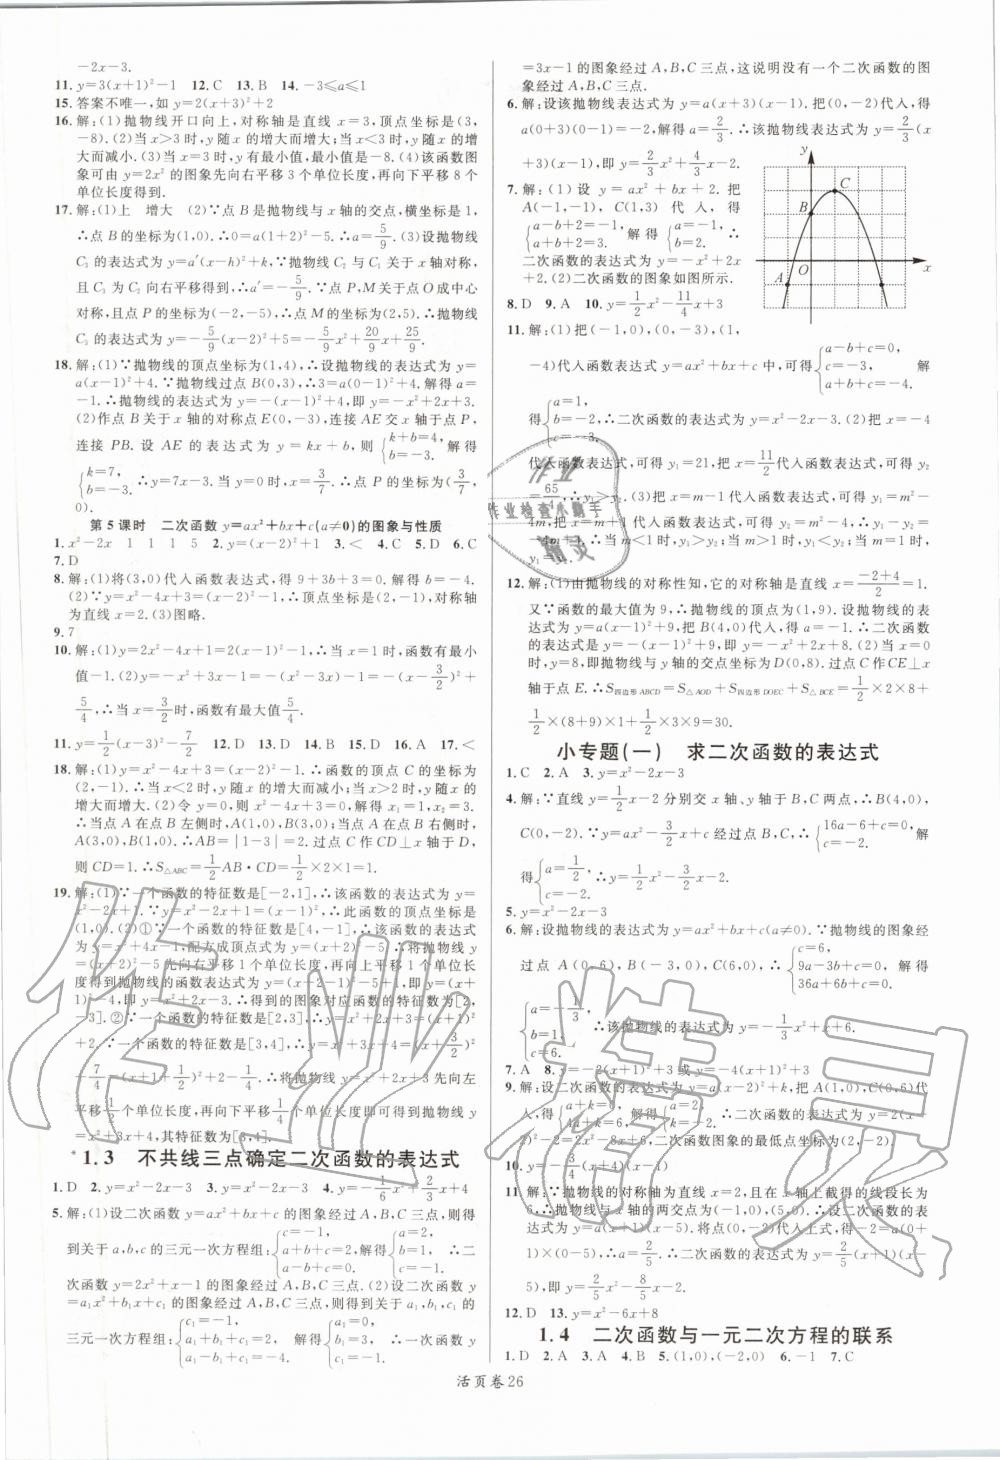 -2x-3.
11. y=3(x+1)²-1  12. C  13. B  14. -3≤a≤1
15. 答案不唯一,如 y=2(x+3)²+2
16. 解:(1)抛物线开口向上,对称轴是直线 x=3,顶点坐标是(3,
-8).(2)当 x>3 时,y 随 x 的增大而增大;当 x<3 时,y 随 x 的增
大而减小.(3)当 x=3 时,y 有最小值,最小值是-8.(4)该函数图
象可由 y=2x² 的图象先向右平移 3 个单位长度,再向下平移 8 个
单位长度得到.
17. 解:(1)上  增大  (2)∵点 B 是抛物线与 x 轴的交点,横坐标是 1,
∴点 B 的坐标为(1,0).∴0=a(1+2)²-5.∴a=5/9.(3)设抛物线
C₃ 的表达式为 y=a′(x-h)²+k,∵抛物线 C₂ 与 C₁ 关于 x 轴对称,
且 C₃ 为 C₂ 向右平移得到,∴a′=-5/9.∵点 P,M 关于点 O 成中心
对称,且点 P 的坐标为(-2,-5),∴点 M 的坐标为(2,5).∴抛物线
C₃ 的表达式为 y=-5/9(x-2)²+5=-5/9x²+20/9x+25/9.
18. 解:(1)∵抛物线的顶点坐标为(1,4),∴设抛物线的表达式为 y=
a(x-1)²+4.∵抛物线过点 B(0,3),∴3=a(0-1)²+4.解得 a=
-1.∴抛物线的表达式为 y=-(x-1)²+4,即 y=-x²+2x+3.
(2)作点 B 关于 x 轴的对称点 E(0,-3),连接 AE 交 x 轴于点 P,
连接 PB.设 AE 的表达式为 y=kx+b,则{k+b=4, b=-3. 解得
{k=7, b=-3. ∴y=7x-3.当 y=0 时,x=3/7.∴点 P 的坐标为(3/7,
0).
第 5 课时  二次函数 y=ax²+bx+c(a≠0)的图象与性质
1. x²-2x  1  1  1  5  2. y=(x-2)²+1  3. <  4. C  5. D  6. C
7. D
8. 解:(1)将(3,0)代入函数表达式,得 9+3b+3=0.解得 b=-4.
(2)∵y=x²-4x+3=(x-2)²-1,∴顶点坐标为(2,-1),对称轴
为直线 x=2.(3)图略.
9. 7
10. 解:(1)y=2x²-4x+1=2(x-1)²-1,∴当 x=1 时,函数有最小
值-1.(2)y=-x²+3x-1=-(x²-3x)-1=-(x-3/2)²+
5/4,∴当 x=3/2时,函数有最大值5/4.
11. y=1/2(x-3)²-7/2  12. D  13. D  14. B  15. D  16. A  17. <
18. 解:(1)∵y=x²-4x+3=(x-2)²-1,∴函数的顶点 C 的坐标为
(2,-1).∴当 x<2 时,y 随 x 的增大而减小;当 x>2 时,y 随 x 的
增大而增大.(2)令 y=0,则 x²-4x+3=0.解得 x₁=1,x₂=3.
∴当点 A 在点 B 左侧时,A(1,0),B(3,0);当点 A 在点 B 右侧时,
A(3,0),B(1,0).∴AB=|1-3|=2.过点 C 作 CD⊥x 轴于 D,
则 CD=1.∴S△ABC=1/2AB·CD=1/2×2×1=1.
19. 解:(1)∵一个函数的特征数是[-2,1],∴该函数的表达式为 y=
x²-2x+1.∵y=x²-2x+1=(x-1)²,∴此函数的顶点坐标是
(1,0).(2)①∵一个函数的特征数是[4,-1],∴该函数的表达式
为 y=x²+4x-1,配方成顶点式为 y=(x+2)²-5.∴将抛物线 y=
(x+2)²-5 先向右平移 1 个单位长度,再向上平移 1 个单位长
度得到抛物线的函数表达式为 y=(x+2-1)²-5+1,即 y=(x+
1)²-4,即 y=x²+2x-3.∴得到的图象对应函数的特征数是[2,
-3].②∵一个函数的特征数是[2,3],∴y=x²+2x+3=(x+1)²
+2.∵一个函数的特征数是[3,4],∴y=x²+3x+4=(x+3/2)²+
7/4=(x+1+1/2)²+2-1/4.∴将抛物线 y=x²+2x+3 先向左
平移1/2个单位长度,再向下平移1/4个单位长度即可得到抛物线
y=x²+3x+4,其特征数是[3,4].
*1.3  不共线三点确定二次函数的表达式
1. D  2. y=x²-2x-3  3. y=x²-2x-3  4. y=-1/6x²+2/3x+4
5. 解:(1)设二次函数 y=ax²+bx+c 的图象经过 A,B,C 三点,则得
到关于 a,b,c 的三元一次方程组:{ 解得{a=2, b=1, c=-3. ∴二
次函数 y=2x²+x-3 的图象经过 A,B,C 三点.(2)设二次函数 y=
a₁x²+b₁x+c₁ 的图象经过 A,B,C 三点,则得到关于 a₁,b₁,c₁ 的
三元一次方程组:{c₁=-1, a₁+b₁+c₁=2, a₁-b₁+c₁=-4. 解得{a₁=0, b₁=3, c₁=-1. ∴一次函数 y
=3x-1 的图象经过 A,B,C 三点,这说明没有一个二次函数的图
象经过 A,B,C 三点.
6. 解:设该抛物线表达式为 y=a(x+3)(x-1).把(0,-2)代入,得
a(0+3)(0-1)=-2.解得 a=2/3.∴该抛物线表达式为 y=2/3(x
+3)(x-1),即 y=2/3x²+4/3x-2.
7. 解:(1)设 y=ax²+bx+2.把
A(-1,-1),C(1,3)代入,得
{a-b+2=-1, a+b+2=3. 解得{a=-1, b=2. ∴
二次函数的表达式为 y=-x²+2x
+2.(2)二次函数的图象如图所示.
y
C
B
A
O
x
8. D  9. A  10. y=1/2x²-11/4x+3
11. 解:(1)把(-1,0),(0,-3),(1,
-4)代入函数表达式 y=ax²+bx+c 中,可得{a-b+c=0, c=-3, a+b+c=-4. 解
得{a=1, b=-2, c=-3. ∴二次函数的表达式为 y=x²-2x-3.(2)把 x=-4
代入函数表达式,可得 y₁=21,把 x=11/2代入函数表达式,可得 y₂
=65/4,∴y₁>y₂.(3)
12. 解:(1)由抛物线的对称性知,它的对称轴是直线 x=(-2+4)/2=1.
又∵函数的最大值为 9,∴抛物线的顶点为(1,9).设抛物线的表
达式为 y=a(x-1)²+9,把 B(4,0)代入,得 a=-1.∴二次函数
的表达式是 y=-(x-1)²+9,即 y=-x²+2x+8.(2)当 x=0
时,y=8,即抛物线与 y 轴的交点坐标为 D(0,8).过点 C 作 CE⊥x
轴于点 E.∴S四边形ABCD=S△AOD+S四边形DOEC+S△BCE=1/2×2×8+
1/2×(8+9)×1+1/2×3×9=30.
小专题(一)  求二次函数的表达式
1. C  2. A  3. y=x²-2x-3
4. 解:∵直线 y=1/2x-2 分别交 x 轴、y 轴于 B,C 两点,∴B(4,0),
C(0,-2).∵y=ax²-3/2x+c 经过点 B,C,∴{16a-6+c=0, c=-2. 解
得{a=1/2, c=-2. ∴y=1/2x²-3/2x-2.
5. y=x²-2x-3
6. 解:设抛物线的表达式为 y=ax²+bx+c(a≠0).∵抛物线的图象经
过点 A(0,6),B(-3,0),C(6,0),∴{c=6, 9a-3b+c=0, 36a+6b+c=0. 解得
{a=-1/3, b=1, c=6. ∴该抛物线的表达式为 y=-1/3x²+x+6.
7. A  8. y=-2(x+1)²+3或 y=-4(x+1)²+3
9. 解:设二次函数的表达式为 y=a(x-2)²+k,把 A(1,0),C(0,6)代
入,得{a+k=0, 4a+k=6. 解得{a=2, k=-2. ∴二次函数的表达式为 y=2(x-
2)²-2=2x²-8x+6,二次函数图象的最低点坐标为(2,-2).
10. y=-3/4(x+4)(x-1)
11. 解:∵抛物线的对称轴为直线 x=2,且在 x 轴上截得的线段长为
6,∴抛物线与 x 轴的两交点为(-1,0),(5,0).∴设二次函数的表
达式为 y=a(x+1)(x-5).将点(0,-2)代入上式,得-2=a(0+
1)×(0-5),∴a=2/5.∴二次函数的表达式为 y=2/5(x+1)(x
-5),即 y=2/5x²-8/5x-2.
12. D  13. y=x²-6x+8
1.4  二次函数与一元二次方程的联系
1. D  2. A  3. A  4. B  5. (1,0),(-2,0)  6. -1  7. C
活页卷26
作业精灵
作业检查小助手